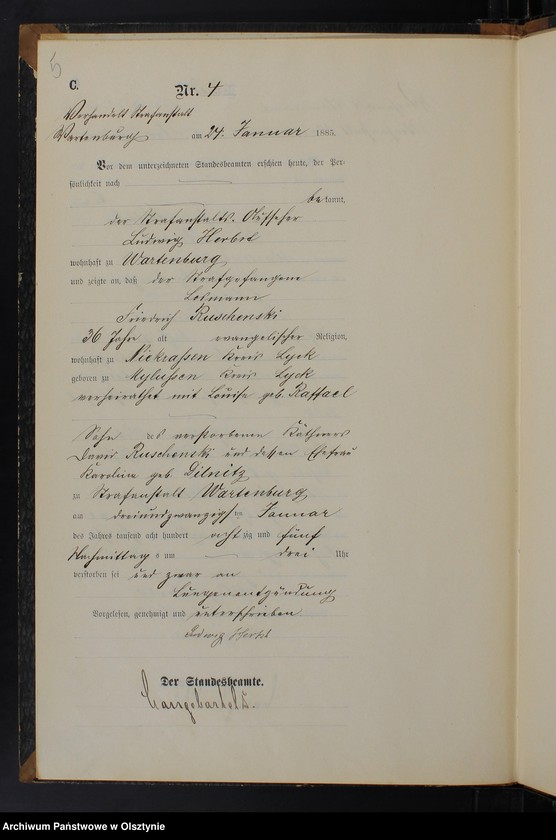 5
C.
Nr. 4
Verhandelt Strafanstalt
Wartenburg am 24. Januar 1885.
Vor dem unterzeichneten Standesbeamten erschien heute, der Per-
sönlichkeit nach
bekannt,
der Strafanstalts-Aufseher
Ludwig Herbst
wohnhaft zu Wartenburg
und zeigte an, daß der Strafgefangene
Losmann
Friedrich Ruschenski
36 Jahr alt evangelischer Religion,
wohnhaft zu Nickrassen Kreis Lyck
geboren zu Mylussen Kreis Lyck
verheirathet mit Louise geb. Raffael
Sohn des verstorbenen Käthners
David Ruschenski und dessen Ehefrau
Karoline geb. Dilnitz
zu Strafanstalt Wartenburg
am dreiundzwanzigsten Januar
des Jahres tausend acht hundert achtzig und fünf
Nachmittags um drei Uhr
verstorben sei und zwar an
Lungenentzündung
Vorgelesen, genehmigt und unterschrieben
Ludwig Herbst
Der Standesbeamte.
Archiwum Państwowe w Olsztynie